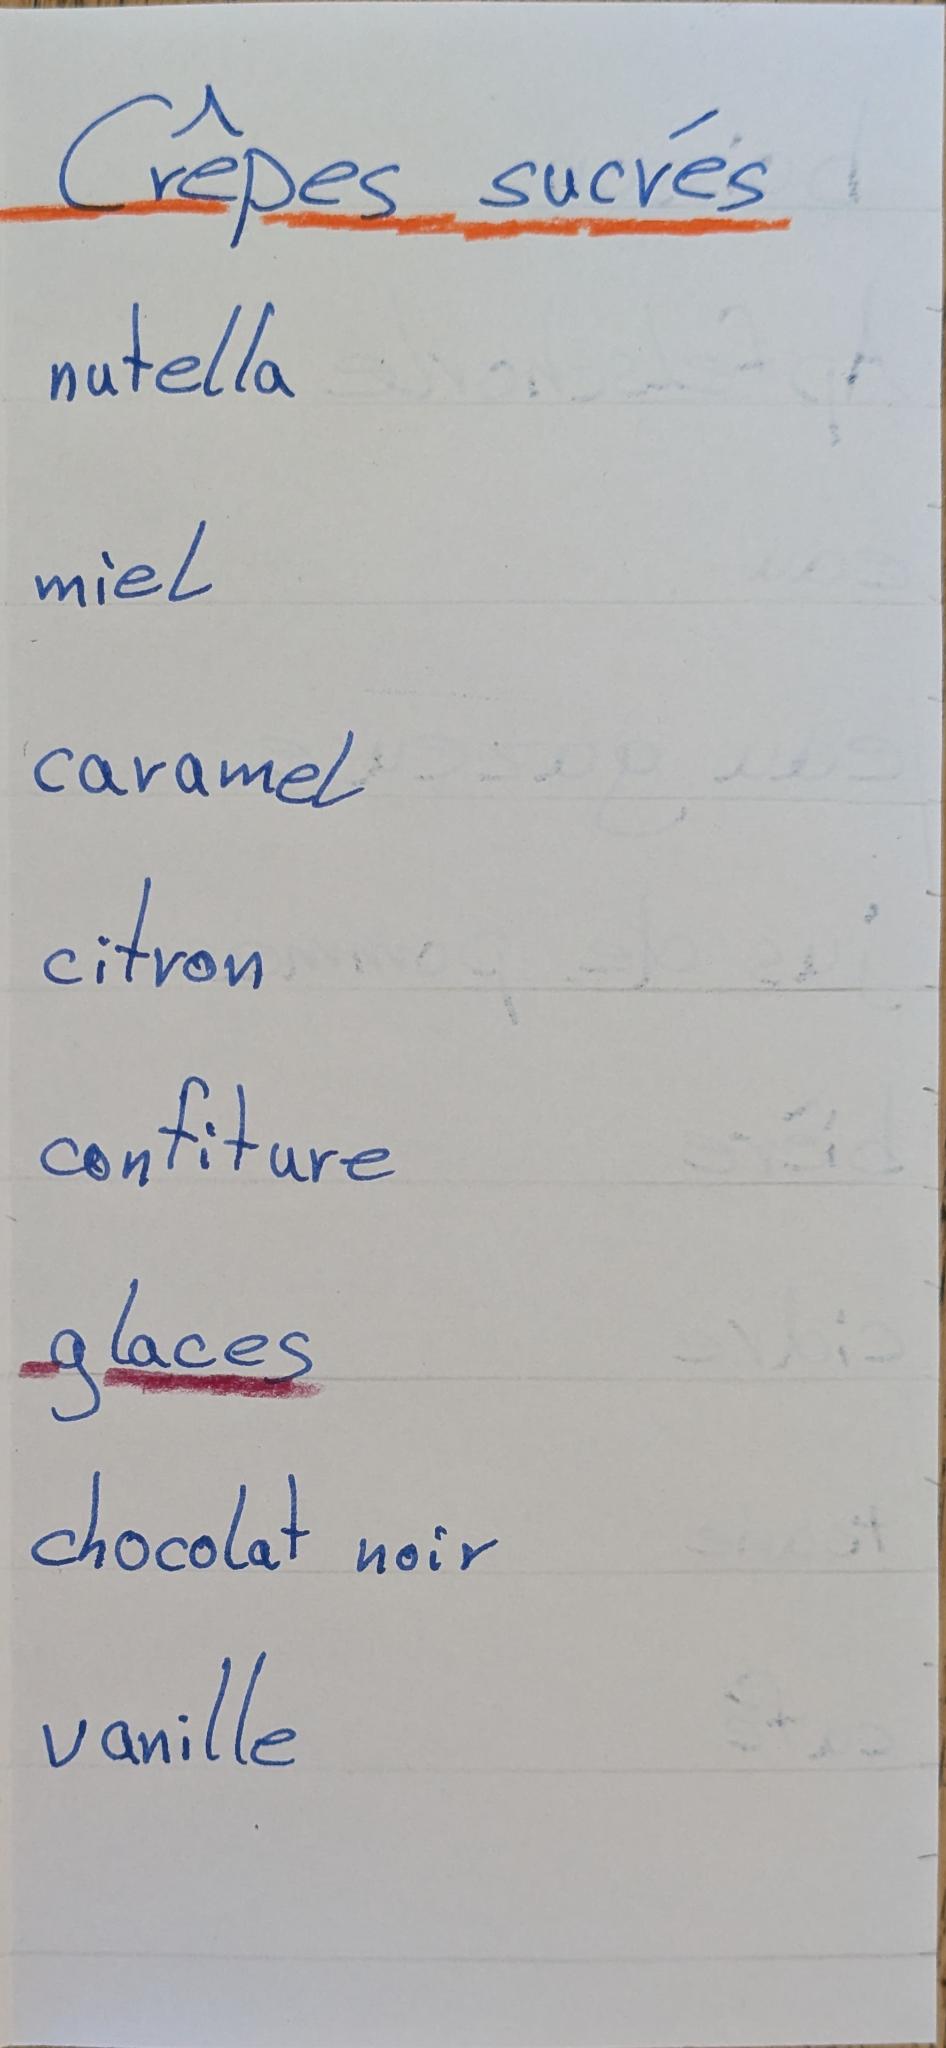 Crêpes sucrés
nutella
miel
caramel
citron
confiture
glaces
chocolat noir
vanille